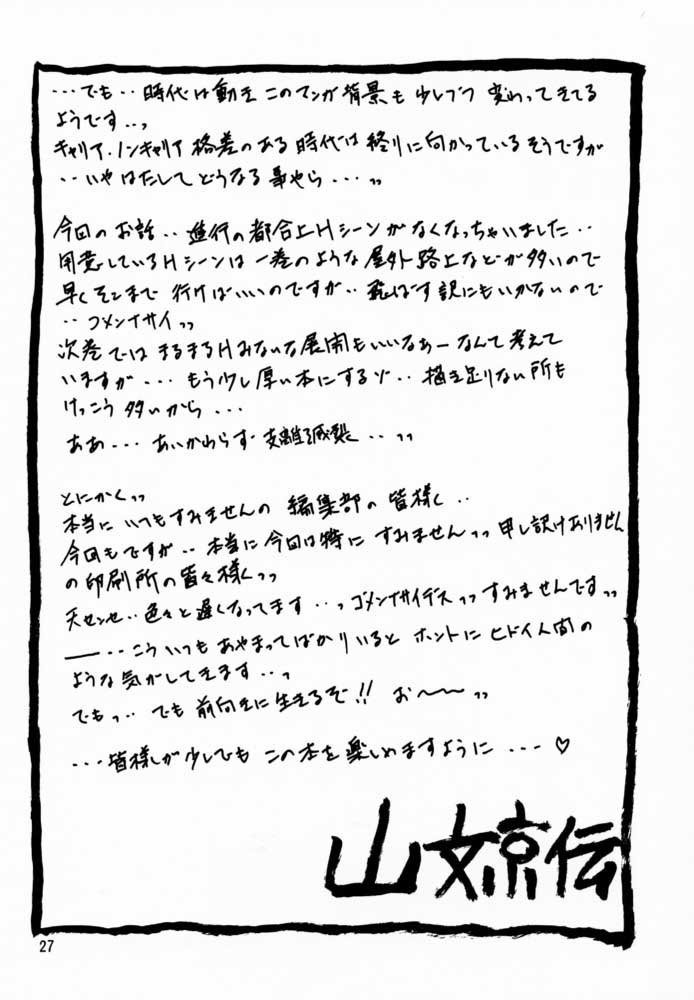 ...でも..時代は動き このマンガ背景も少しづつ 変わってきてる
ようです..っ
キャリア.ノンキャリア 格差のある時代は 終りに向かっているそうですが
..いやはたしてどうなる事やら...〃
今回のお話..進行の都合上Hシーンがなくなっちゃいました..
用意しているHシーンは一巻のような屋外路上などが多いので
早くそこまで行けばいいのですが..飛ばす訳にもいかないので
..ゴメンナサイ〃
次巻ではまるまるHみないな展開もいいなぁーなんて考えて
いますが...もう少し厚い本にするゾ..描き足りない所も
けっこう多いから...
ああ...あいかわらず支離滅裂..〃
とにかく〃
本当にいつもすみませんの 編集部の皆様く..
今回もですが..本当に今回は特に すみません〃申し訳けありません
の印刷所の皆々様く〃
天センセ..色々と遅くなってます..っゴメンナサイデス〃すみませんです〃
―..こういつもあやまってばかりいると ホントにヒドイ人間の
ような気がしてきます..っ
でもっ..でも前向きに生きるぞ!! お〜〃
...皆様しが少しでも この本を楽しめますように...♡
山文京伝
27